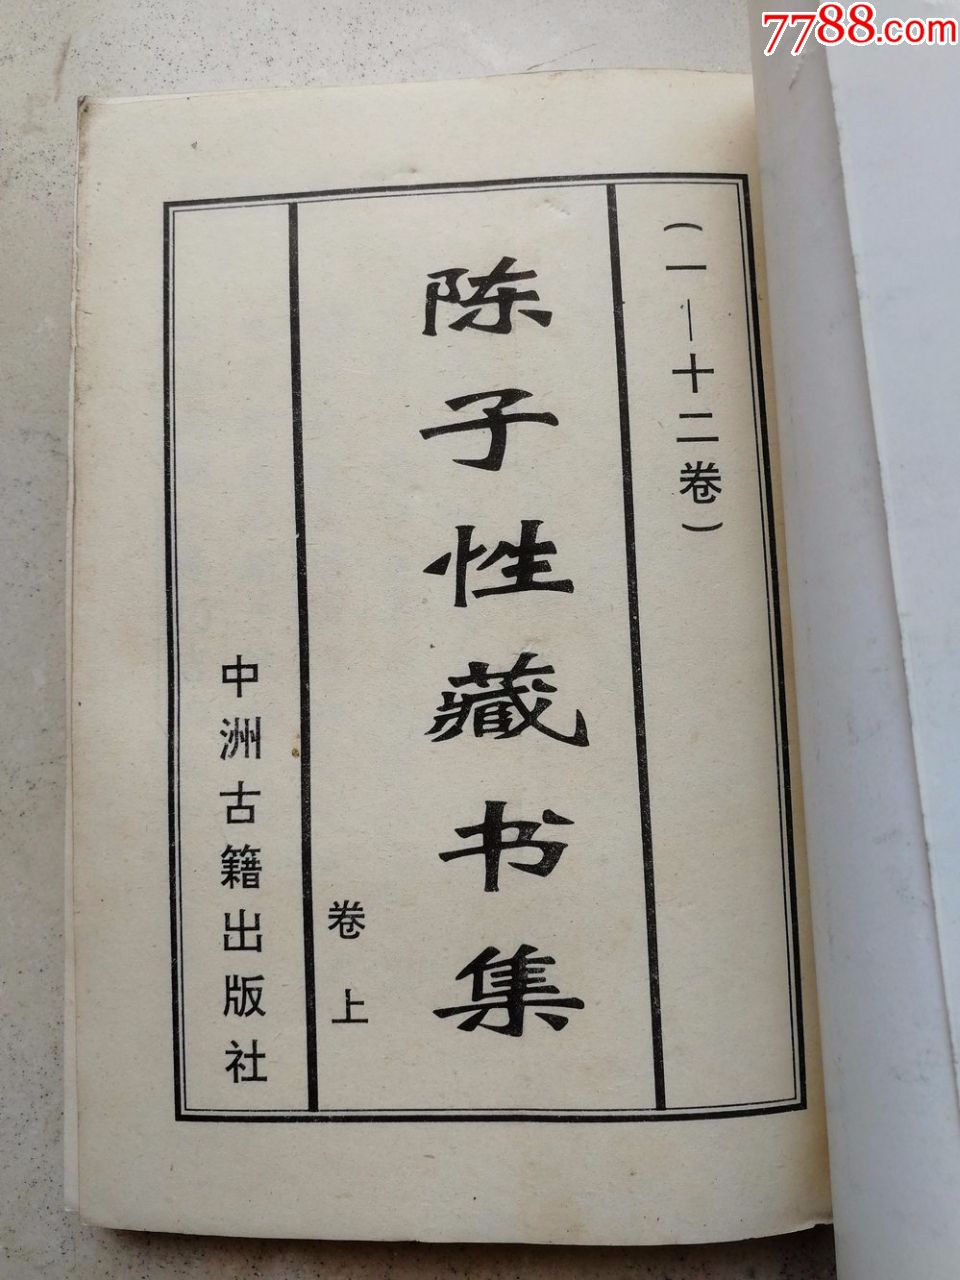 7788.com
(一—十二卷)
陈子性藏书集
卷上
中洲古籍出版社